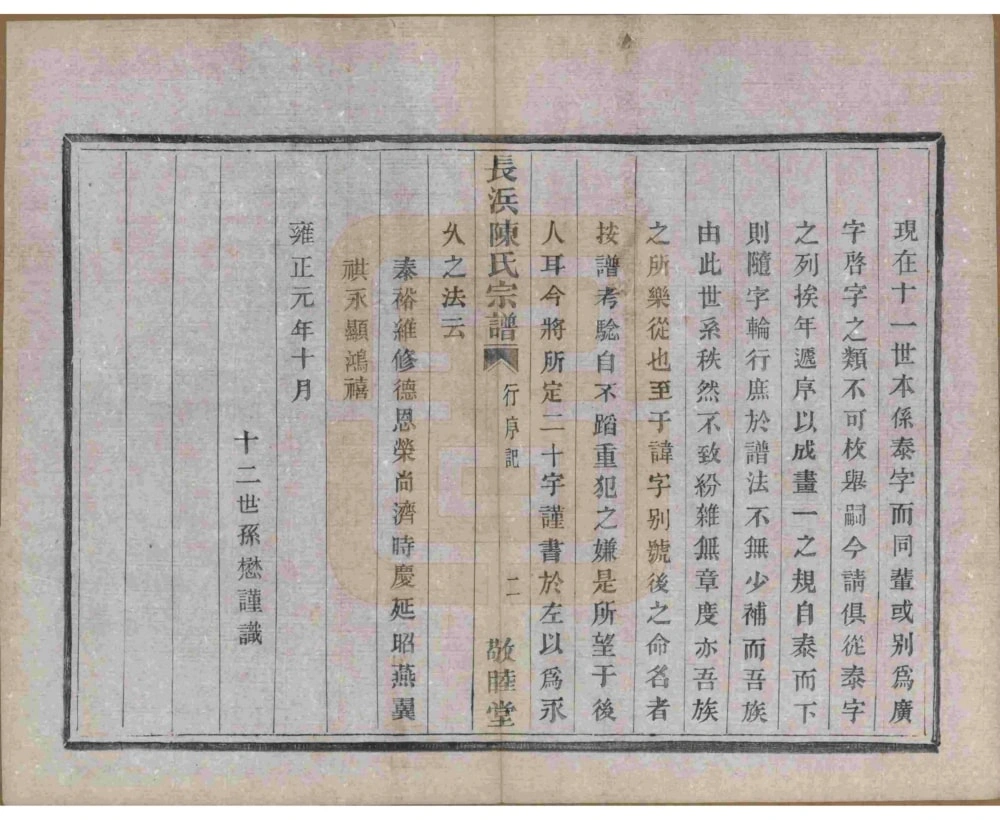 現在十一世本係泰字而同輩或别爲廣
字啓字之類不可枚舉嗣今請俱從泰字
之列挨年遞序以成畫一之規自泰而下
則隨字輪行庶於譜法不無少補而吾族
由此世系秩然不致紛雜無章度亦吾族
之所樂從也至于諱字别號後之命名者
按譜考騐自不蹈重犯之嫌是所望于後
人耳今將所定二十字謹書於左以爲永
長浜陳氏宗譜 行序記 二 敬睦堂
久之法云
泰裕維修德恩榮尚濟時慶延昭燕翼
祺永顯鴻禧
雍正元年十月
十二世孫懋謹識